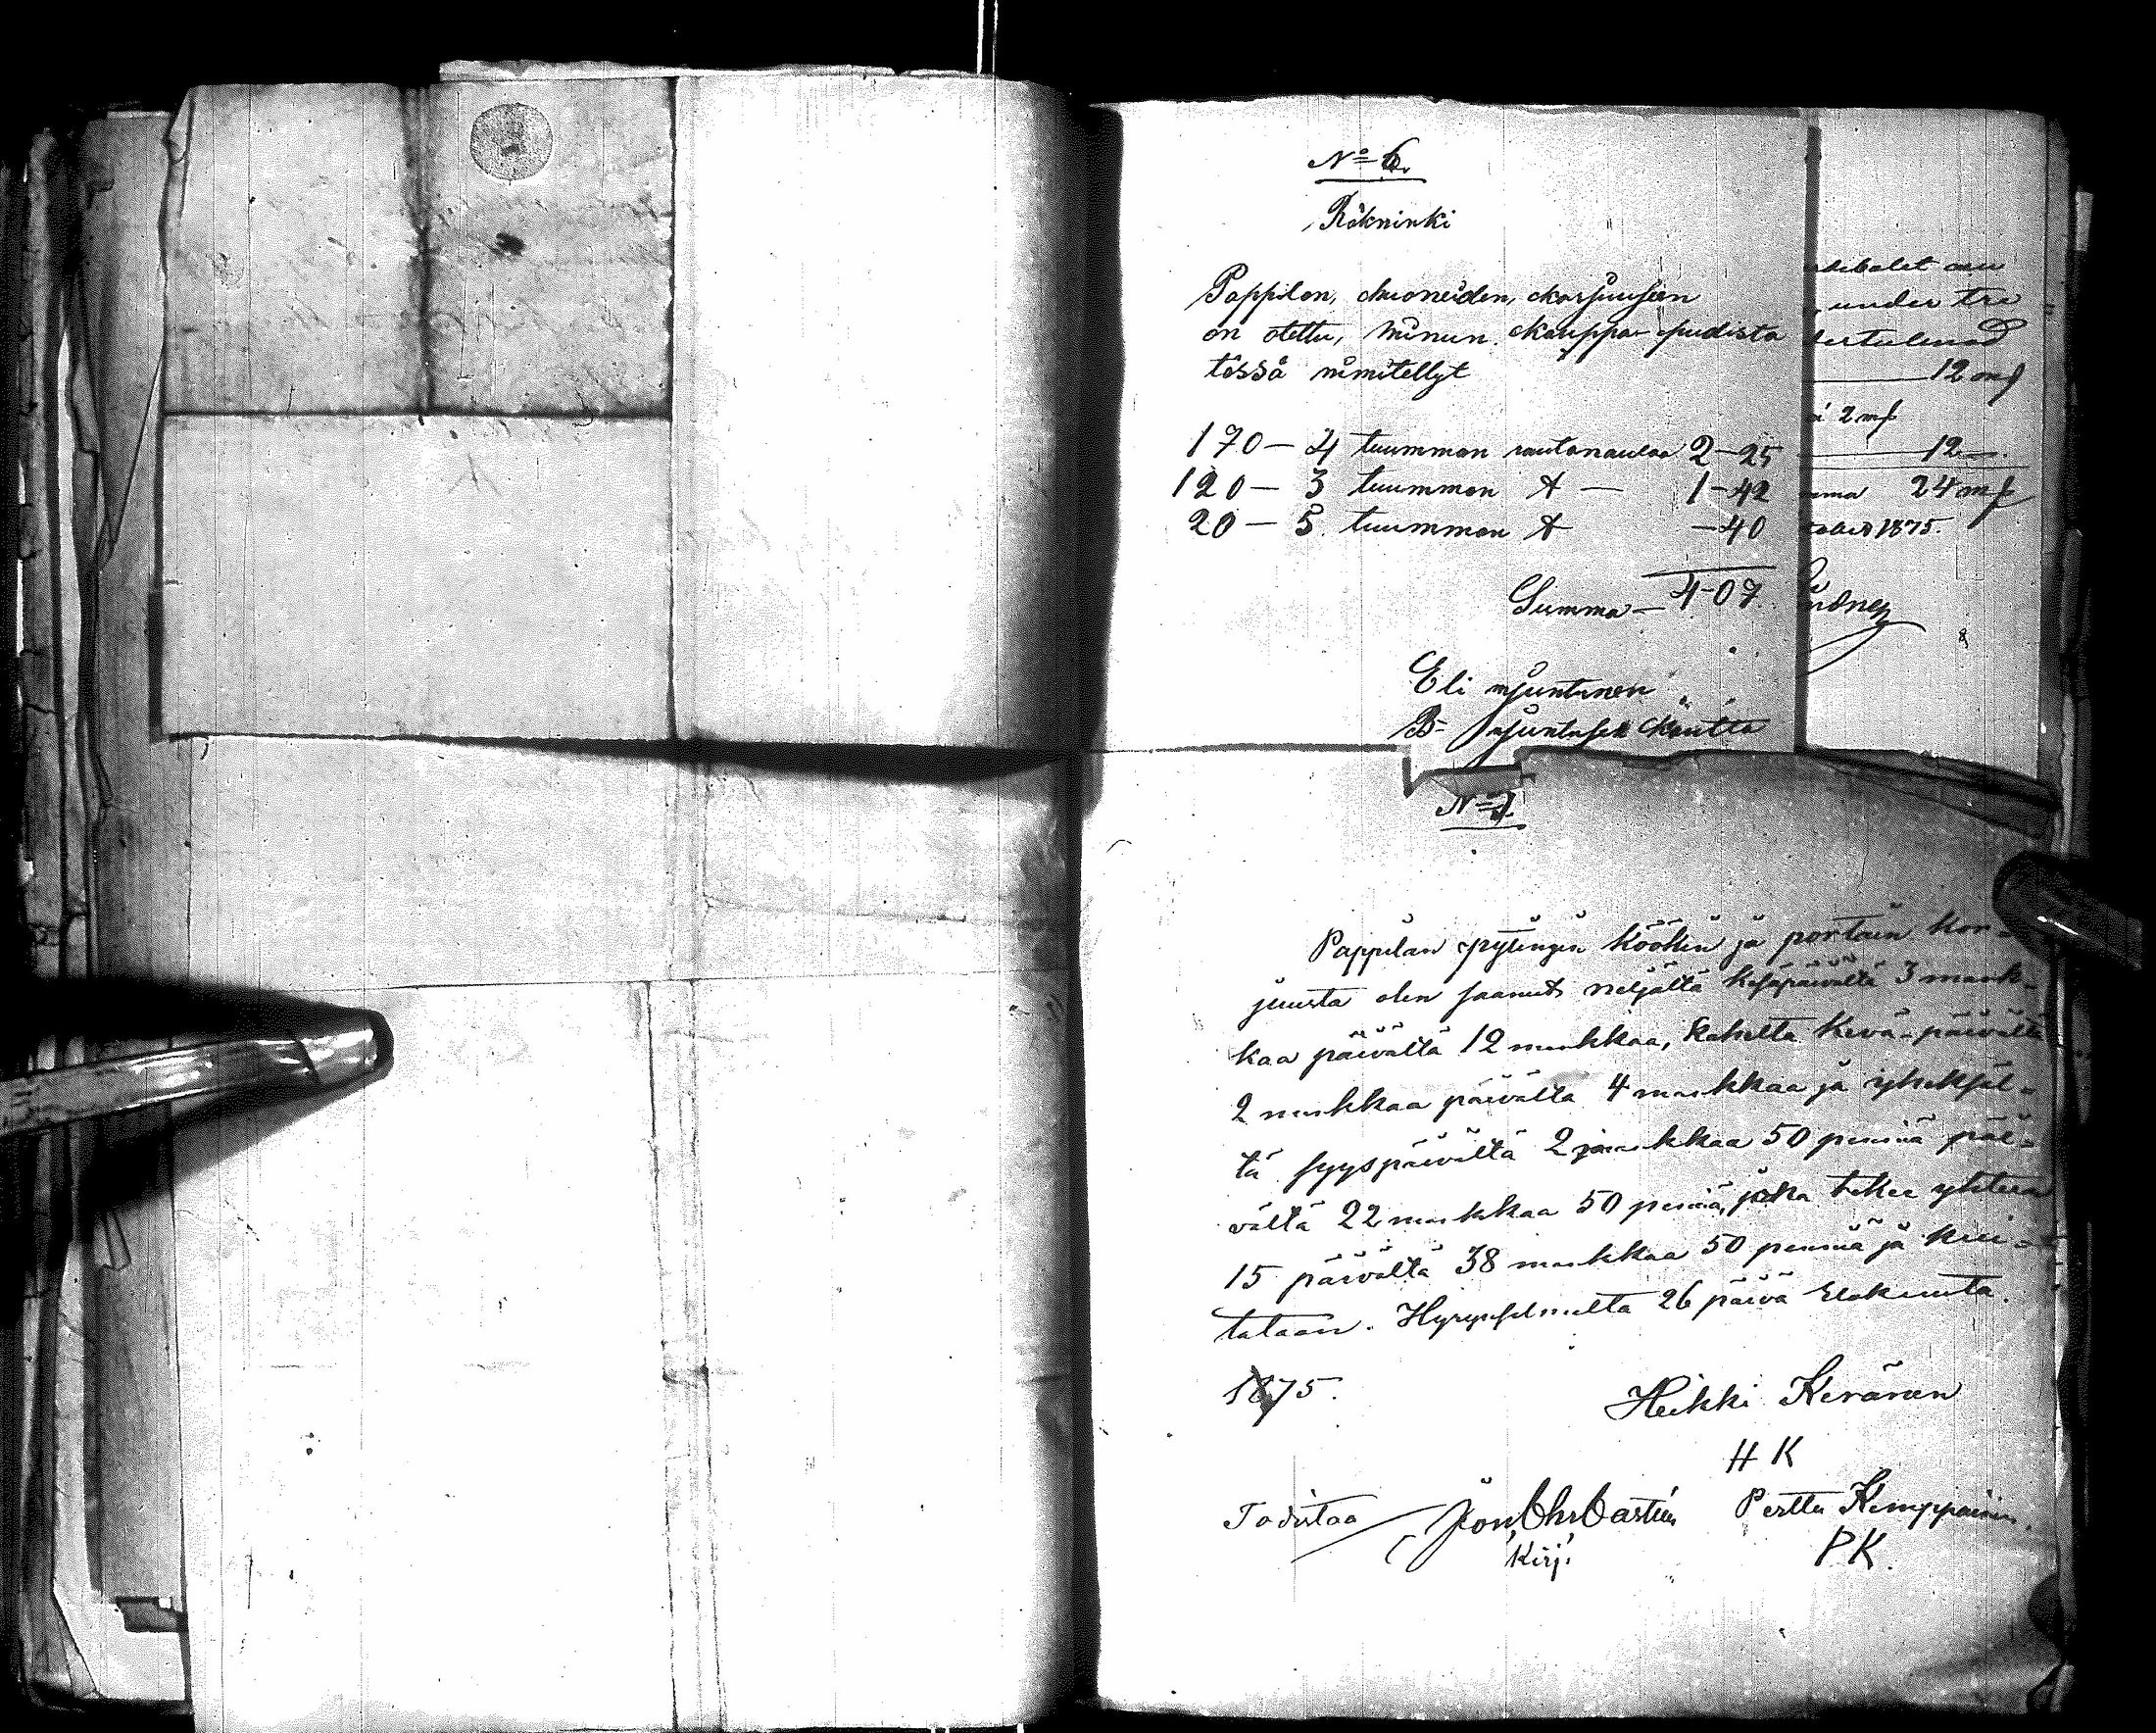 No 6.
Räkninki
Pappilan, huoneiden, korjuusen
on otettu, minun kauppa-pudista
tässä nimitellyt
170 — 4 tuumman rautanaulaa 2-25
120 — 3 tuumman — 1-42
20 — 5. tuumman -40
Summa — 4-07.
Eli Juntunen
Juntusen kautta
under tre
12 mf
2 mf
12 —.
24 mf
1875.
No 7.
Pappilan pytingin köökin ja portain kor-
juusta olen saanut neljältä kesäpäivältä 3 mark-
kaa päivältä 12 markkaa, kahelta kevä-päivältä
2 markkaa päivältä 4 markkaa ja yheksäl-
tä syyspäivältä 2 markkaa 50 penniä päi-
vältä 22 markkaa 50 penniä, joka tekee yhteen
15 päivältä 38 markkaa 50 penniä ja kvii-
tataan. Hyrynsalmelta 26 päivä Elokuuta.
1875.
Heikki Keränen
H K
Todistaa Joh Chr Castrén Pertta Kemppainen.
Kirj. P K.